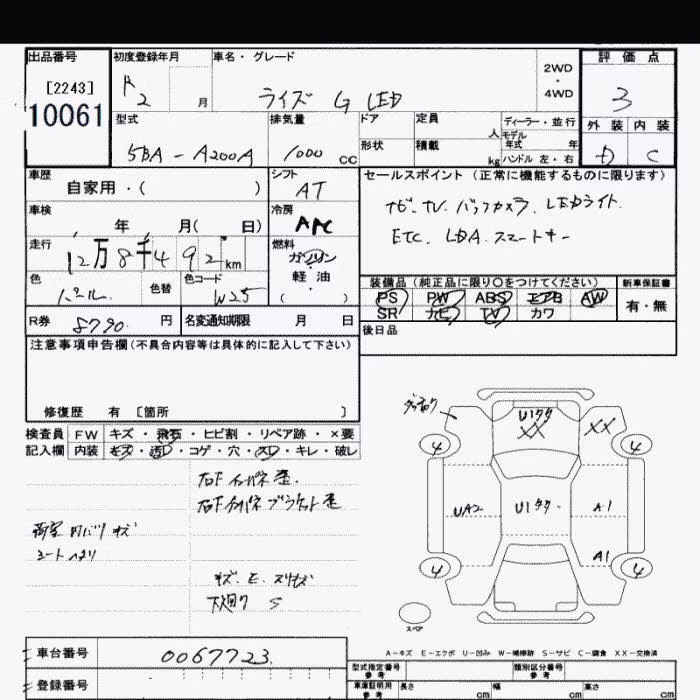 出品番号
[2243]
10061
初度登録年月
R2 月
車名・グレード
ライズ G LED
2WD
・
4WD
評価点
3
外装 内装
D C
型式
5BA - A200A
排気量
1000 CC
ドア
形状
定員
人
積載
kg
ディーラー・並行
モデル
年式 年
ハンドル 左・右
車歴
自家用・( )
シフト
AT
セールスポイント (正常に機能するものに限ります)
ナビ. TV. バックカメラ. LEDライト.
ETC. LDA. スマートキー
車検
年 月( 日)
冷房
AAC
走行
12万8千492km
燃料
ガソリン
・
軽・油
( )
色
パール.
色替
色コード
W25
装備品 (純正品に限り○をつけてください)
新車保証書
PS PW ABS エアB AW
SR ナビ TV カワ
有・無
R券 8790. 円
名変通知期限 月 日
後日品
注意事項申告欄(不具合内容等は具体的に記入して下さい)
修復歴 有 [箇所 ]
検査員 FW キズ・飛石・ヒビ割・リペア跡・×要
記入欄 内装 キズ・汚レ・コゲ・穴・スレ・キレ・破レ
右F インパネ 歪.
右F インパネ ブラケット歪
荷室 内バリ キズ
シートヘタリ
キズ. E. スリキズ
下廻り S
U1タタ
XX
XX
4
4
UA2
U1タタ.
A1
A1
4
4
スペア
A－キズ E－エクボ U－凹み W－補修跡 S－サビ C－腐食 XX－交換済
車台番号 0067723.
登録番号
型式指定番号
参考
類別区分番号
参考
車庫証明用
参考
長さ cm
幅 cm
高さ cm